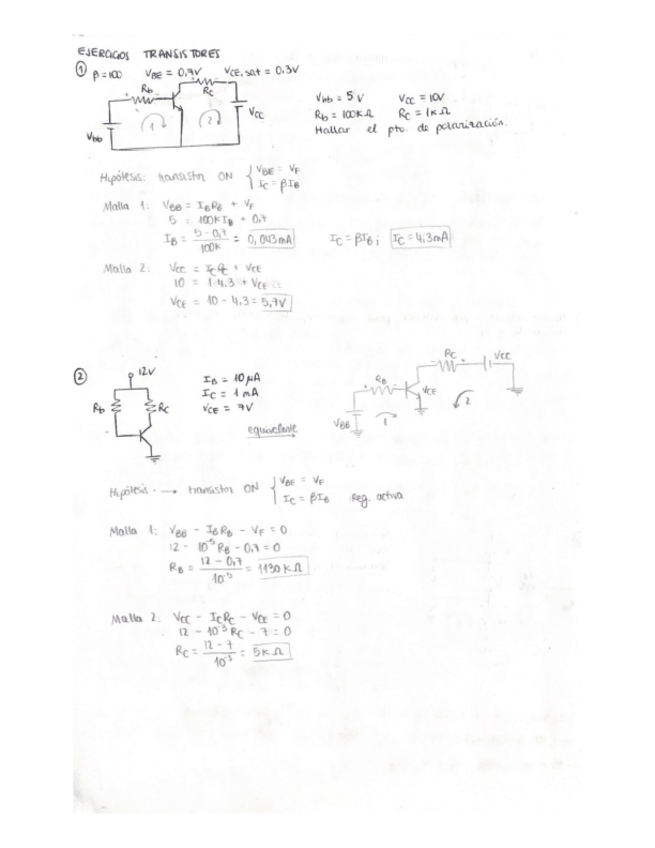 EJERCICIOS TRANSISTORES
① β=100 VBE = 0,7V VCE,sat = 0.3V
Rb RC
Vbb 1 2 VCC
Vbb = 5V VCC = 10V
Rb = 100KΩ RC = 1KΩ
Hallar el pto. de polarización.
Hipótesis: transistor ON { VBE = VF
IC = βIB
Malla 1: VBB = IBRB + VF
5 = 100KIB + 0,7
IB = 5-0,7 / 100K = 0,043mA IC = βIB; IC = 4,3mA
Malla 2: VCC = ICRC + VCE
10 = 1·4.3 + VCE
VCE = 10 - 4,3 = 5,7V
② 12V
Rb RC
IB = 10μA
IC = 1mA
VCE = 7V
equivalente
RC VCC
RB VCE
VBB 1 2
Hipótesis → transistor ON { VBE = VF
IC = βIB Reg. activa
Malla 1: VBB - IBRB - VF = 0
12 - 10⁻⁵RB - 0,7 = 0
RB = 12 - 0,7 / 10⁻⁵ = 1130KΩ
Malla 2: VCC - ICRC - VCE = 0
12 - 10⁻³RC - 7 = 0
RC = 12 - 7 / 10⁻³ = 5KΩ